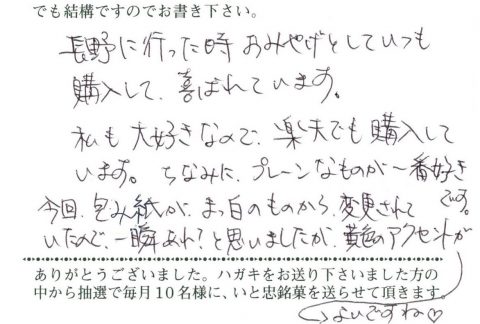 でも結構ですのでお書き下さい。
長野に行った時おみやげとしていつも
購入して、喜ばれています。
私も大好きなので、楽天でも購入して
います。ちなみに、プレーンなものが一番好き
です。
今回、包み紙が、まっ白のものから、変更されて
いたので、一瞬あれ?と思いましたが、黄色のアクセントが
よいですね♡
ありがとうございました。ハガキをお送り下さいました方の
中から抽選で毎月10名様に、いと忠銘菓を送らせて頂きます。